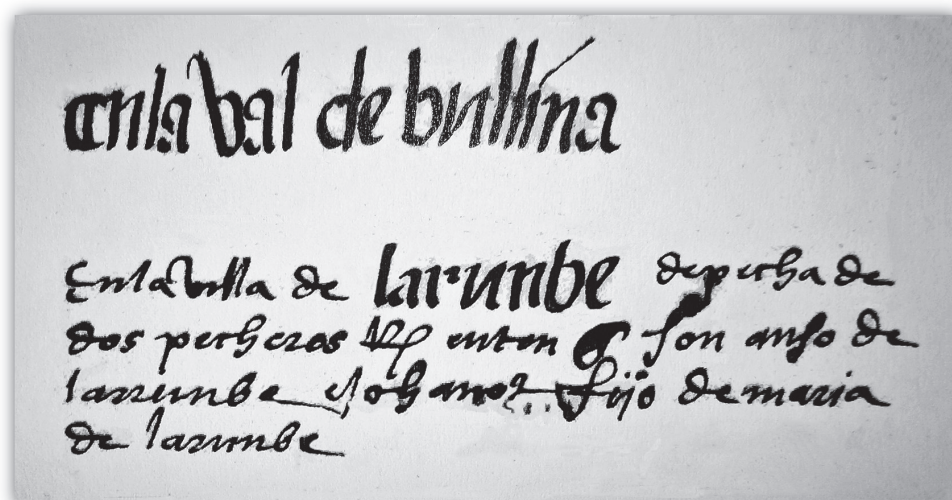 enla val de bullina
Enla villa de larunbe de pecha de
dos pecheros son anso de
larrunbe fijo de maria
de larrunbe